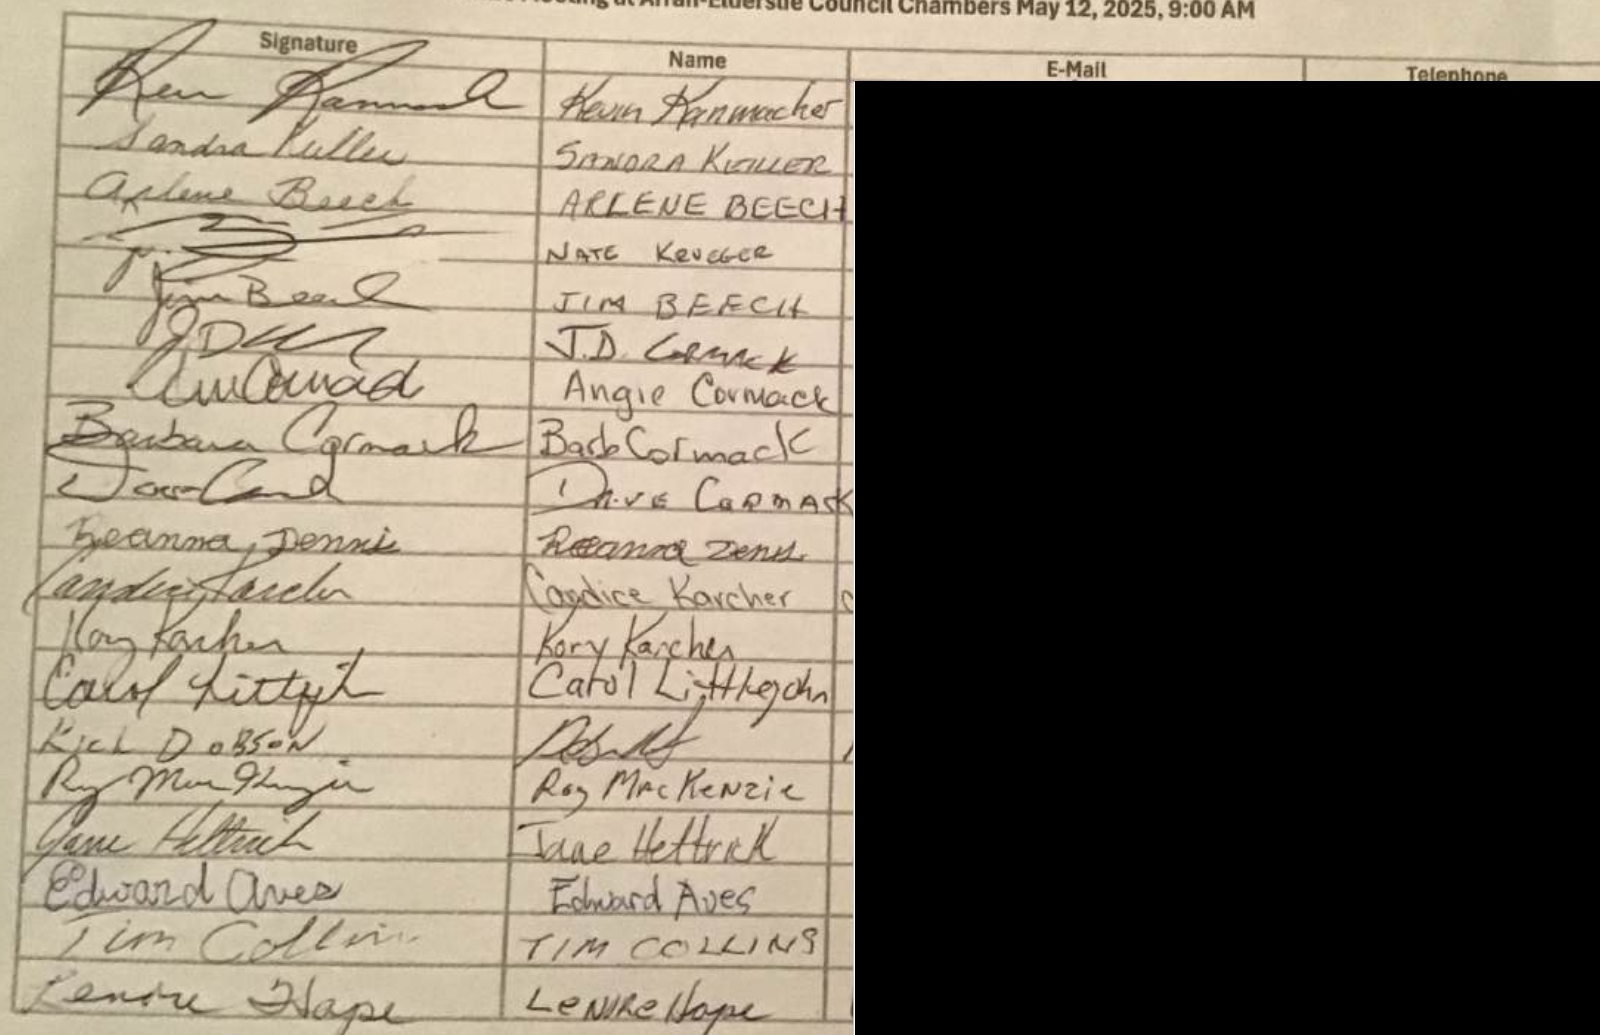 Meeting at Arran-Elderslie Council Chambers May 12, 2025, 9:00 AM
Signature Name E-Mail Telephone
Kevin Kanmacher
Sandra SANDRA
Arlene Beech ARLENE BEECH
NATE KRUEGER
Jim Beech JIM BEECH
J.D. CORMACK
Angie Cormack
Barbara Cormack Barb Cormack
DAVE CORMACK
Reanna Dennis Reanna
Candice Karcher Candice Karcher
Kory Karcher Kory Karcher
Carol Carol Littlejohn
Rick DOBSON
Roy MacKenzie
Jane Hettrick Jane Hettrick
Edward Aves Edward Aves
Tim Collins TIM COLLINS
Lenore Hope LENORE Hope